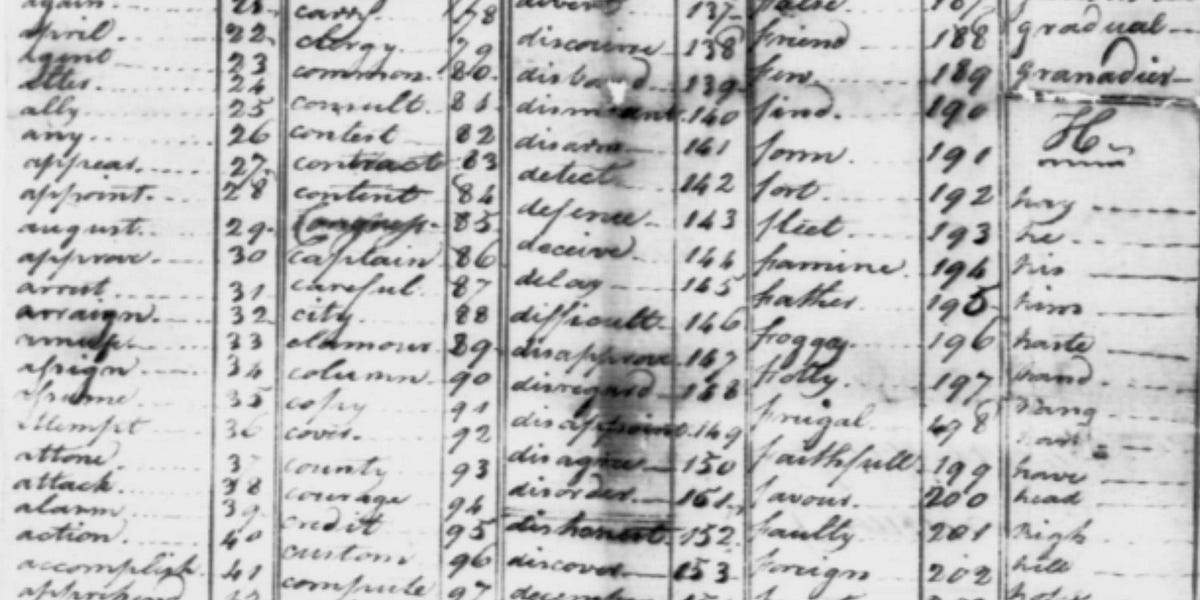 again. 21
april. 22
agent 23
24
ally 25
any 26
appear 27
appoint 28
august. 29
approve. 30
arrest. 31
arraign. 32
33
assign 34
assume 35
attempt 36
attone. 37
attack. 38
alarm 39
action. 40
accomplish. 41
apprehend
carry. 78
clergy. 79
common. 80
consult. 81
contest 82
contract 83
content 84
Congress 85
captain 86
careful. 87
city. 88
clamour. 89
column 90
copy 91
cover. 92
county 93
courage 94
credit 95
custom 96
compute 97
divert 137
discourse 138
disband 139
dismount 140
disarm 141
detect 142
defence 143
deceive. 144
delay 145
difficult 146
disapprove 147
disregard 148
disappoint 149
disagree 150
disorder 151
dishonest 152
discover 153
december
false. 187
friend 188
few. 189
find. 190
form. 191
fort 192
fleet 193
famine. 194
father 195
foggy 196
folly. 197
frugal. 198
faithfull 199
favour. 200
faulty 201
foreign 202
gradual
granadier
H
hay
he
his
him
haste
hand
hang
have
head
high
hill